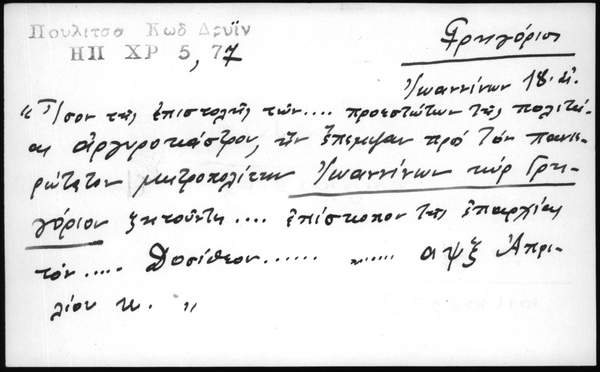 Πουλίτσα Κωδ Δρυϊν
ΗΠ ΧΡ 5, 77
Γρηγόριος
Ἰωαννίνων 18. αἰ.
«Ἴσον τῆς ἐπιστολῆς τῶν.... προεστώτων τῆς πολιτεί-
ας Ἀργυροκάστρου, ἣν ἔπεμψαν πρὸ τὸν πανιε-
ρώτατον μητροπολίτην Ἰωαννίνων κύρ Γρη-
γόριον ζητοῦντες.... ἐπίσκοπον τῆς ἐπαρχίας
τόν..... Δοσίθεον...... ...... αψξ Ἀπρι-
λίου κ. "